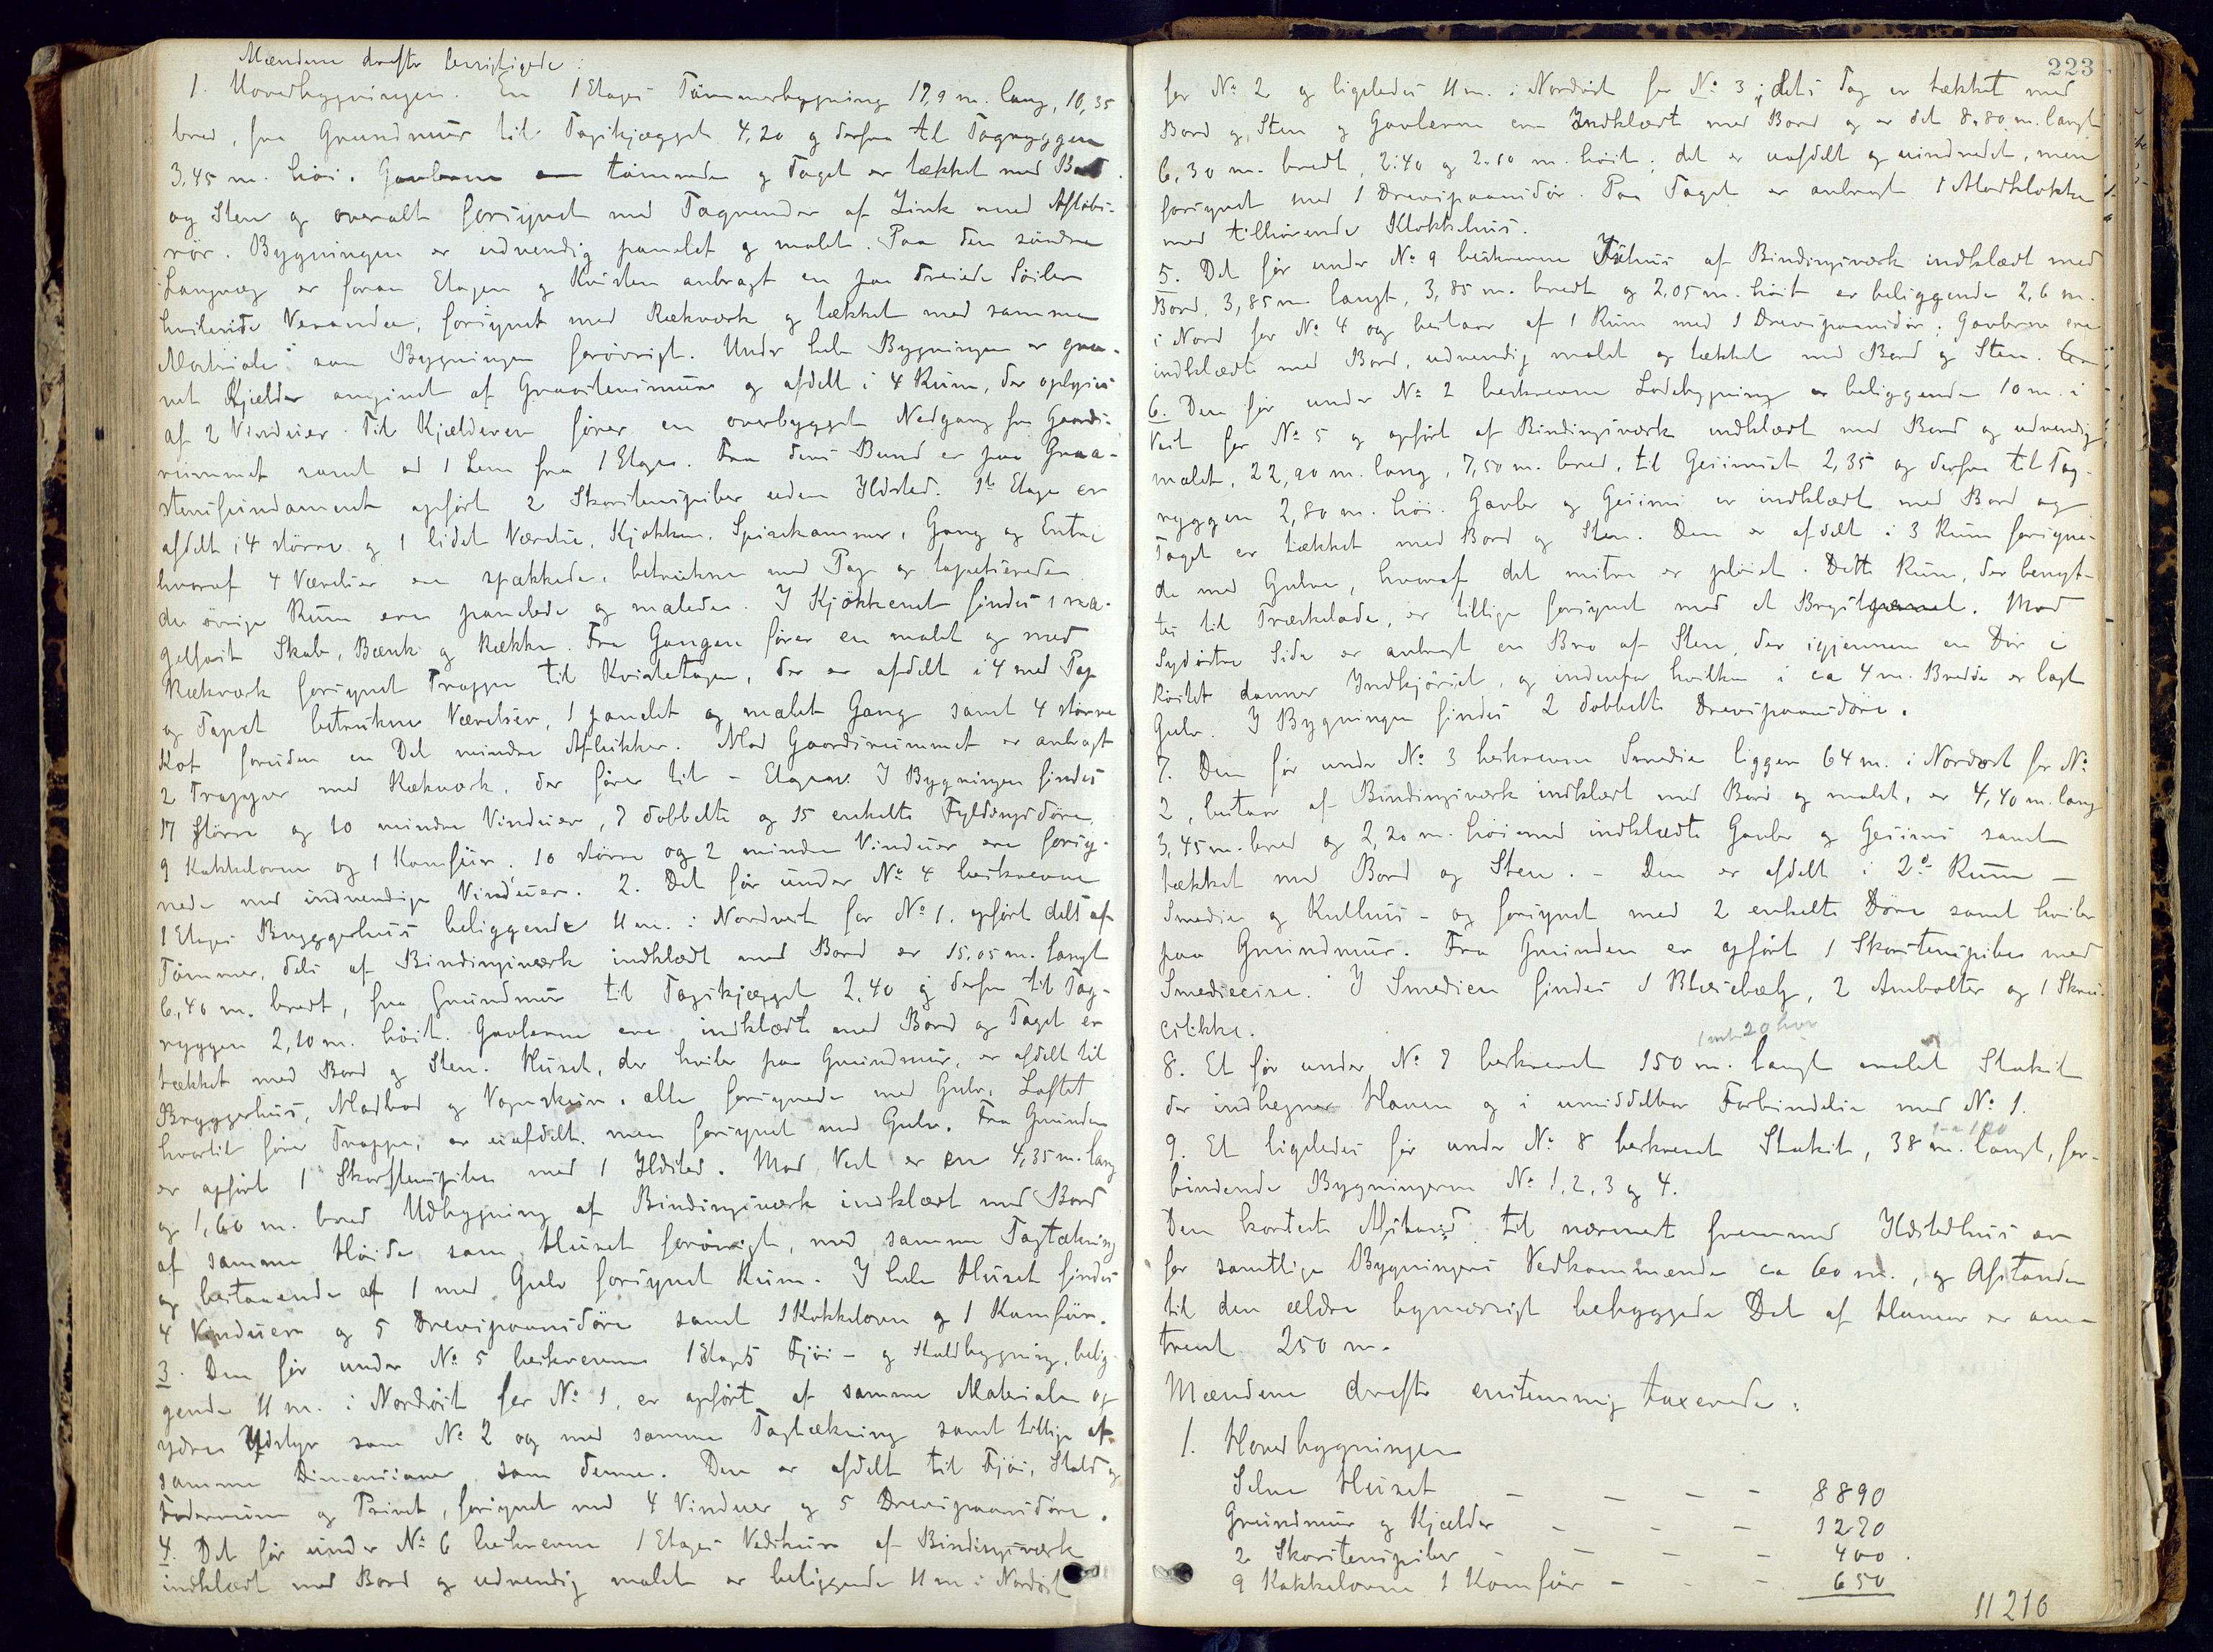 Mændene drøfte besigtigede:
1. Hovedbygningen. En 1 Etages Tømmerbygning 17,9 m. lang, 10,35
bred, fra Grundmur til Tagskjægget 4,20 og derfra til Tagryggen
3,45 m. høi. Gavlerne ere tømrede og Taget er tækket med Bord
og Sten og overalt forsynet med Tagrender af Zink med Afløbs-
rør. Bygningen er udvendig panelet og malet. Paa den søndre
Langvæg er foran Etagen og Kvisten anbragt en paa dreiede Søiler
hvilende Veranda, forsynet med Rækværk og tækket med samme
Materiale som Bygningen forøvrigt. Under hele Bygningen er grav-
net Kjelder omgivet af Graastensmure og afdelt i 4 Rum, der oplyses
af 2 Vinduer. Til Kjælderen fører en overbygget Nedgang fra Gaards-
rummet samt ad 1 Lem fra 1 Etage. Fra dens Bund er paa Graa-
stensfundament opført 2 Skorstenspiber uden Ildsted. 1ste Etage er
afdelt i 4 større og 1 lidet Værelse, Kjøkken, Spisekammer, Gang og Entre
hvoraf 4 Værelser ere spækkede, betrukne med Pap og tapetserede
de øvrige Rum ere panelede og malede. I Kjøkkenet findes 1 na-
gelfast Skab, Bænk og Række. Fra Gangen fører en malet og med
Rækværk forsynet Trappe til Kvistetagen, der er afdelt i 4 med Pap
og Tapet betrukne Værelser, 1 panelet og malet Gang samt 4 større
Kot foruden en Del mindre Aflukker. Mod Gaardsrummet er anbragt
2 Trapper med Rækværk, der fører til - Etagen. I Bygningen findes
17 større og 10 mindre Vinduer, 7 dobbelte og 15 enkelte Fyldingsdøre,
9 Kakkelovne og 1 Komfur. 10 større og 2 mindre Vinduer ere forsy-
nede med indvendige Vinduer. 2. Det før under No 4 beskrevne
1 Etages Bryggerhuus beliggende 11 m. i Nordvest for No 1. opført dels af
Tømmer, dels af Bindingsværk indklædt med Bord er 15,05 m. langt
6,40 m. bredt, fra Grundmur til Tagskjægget 2,40 og derfra til Tag-
ryggen 2,10 m. høit. Gavlerne ere indklædte med Bord og Taget er
tækket med Bord og Sten. Huset, der hviler paa Grundmur, er afdelt til
Bryggerhus, Madbod og Vognskur, alle forsynede med Gulv. Loftet
hvortil fører Trappe, er uafdelt. men forsynet med Gulv. Fra Grunden
er opført 1 Skorstenspibe med 1 Ildsted. Mod Vest er en 4,35 m. lang
og 1,60 m. bred Udbygning af Bindingsværk indklædt med Bord
af samme Høide som Huset forøvrigt, med samme Tagtækning
og bestaaende af 1 med Gulv forsynet Rum. I hele Huset findes
4 Vinduer og 5 Drevspaansdøre samt 1 Kakkelovn og 1 Komfur.
3. Den før under No 5 beskrevne 1 Etages Fjøs- og Staldbygning, belig-
gende 11 m. i Nordøst for No 1, er opført af samme Materiale og
ydre Udstyr som No 2 og med samme Tagtækning samt tillige af
samme Dimensioner som denne. Den er afdelt til Fjøs, Stald og
Foderrum og Privet, forsynet med 4 Vinduer og 5 Drevspaansdøre.
4. Det før under No 6 beskrevne 1 Etages Vedskur af Bindingsværk
indklædt med Bord og udvendig malet er beliggende 11 m i Nordøst
223
for No 2 og ligeledes 11 m. i Nordvest for No 3; dets Tag er tækket med
Bord og Sten og Gavlerne ere Indklædt med Bord og er det 8.80 m. langt
6,30 m. bredt, 2.40 og 2.10 m. høit; det er uafdelt og uindredet, men
forsynet med 1 Drevspaansdør. Paa Taget er anbragt 1 Madklokke
med tilhørende Klokkehus.
5. Det før under No 9 beskrevne Ishus af Bindingsværk indklædt med
Bord, 3,85 m langt, 3,85 m. bredt og 2,05 m. høit er beliggende 2,6 m.
i Nord for No 4 og bestaar af 1 Rum med 1 Drevspaansdør; Gavlerne ere
indklædte med Bord, udvendig malet og tækket med Bord og Sten.
6. Den før under No 2 beskrevne Ladebygning er beliggende 10 m. i
Vest for No 5 og opført af Bindingsværk indklædt med Bord og udvendig
malet, 22,90 m. lang, 7,50 m. bred, til Gesimset 2,35 og derfra til Tag-
ryggen 2,80 m. høi. Gavler og Gesims er indklædt med Bord og
Taget er tækket med Bord og Sten. Den er afdelt i 3 Rum forsyne-
de med Gulve, hvoraf det mitre er pløiet. Dette Rum, der benyt-
tes til Træskelade, er tillige forsynet med et Brystpanel. Mod
Sydøstre Side er anbragt en Bro af Sten, der igjennem en Dør i
Røstet danner Indkjørsel, og indenfor hvilken i ca 4 m. Bredde er lagt
Gulv. I Bygningen findes 2 dobbelte Drevspaansdøre.
7. Den før under No 3 beskrevne Smedie ligger 64 m. i Nordøst for No
2, bestaar af Bindingsværk indklædt med Bord og malet, er 4,40 m. lang
3,45 m. bred og 2,20 m. høi med indklædte Gavle og Gesims samt
tækket med Bord og Sten. - Den er afdelt i 2de Rum -
Smedie og Kulhus - og forsynet med 2 enkelte Døre samt hviler
paa Grundmur. Fra Grunden er opført 1 Skorstenspibe med
Smedieesse. I Smedien findes 1 Blæsebælg, 2 Ambolter og 1 Skru-
estikke.
1 mtr 20 høi
8. Et før under No 7 beskrevet 150 m. langt malet Stakit
der indhegner Haven og i umiddelbar Forbindelse med No 1.
9. Et ligeledes før under No 8 beskrevet Stakit, 38 m. langt, for-
bindende Bygningerne No 1, 2, 3 og 4.
Den korteste Afstand til nærmeste fremmed Ildstedhus er
for samtlige Bygningers Vedkommende ca 60 m., og Afstanden
til den ældre bymæssigt bebyggede Del af Hamar er om-
trent 250 m.
Mændene drøfte enstemmig taxerede:
1. Hovedbygningen
Selve Huset - - - - 8890
Grundmur og Kjælder - - - 1270
2 Skorstenspiber - - - - 400.
9 Kakkelovne 1 Komfur - - - 650
11210